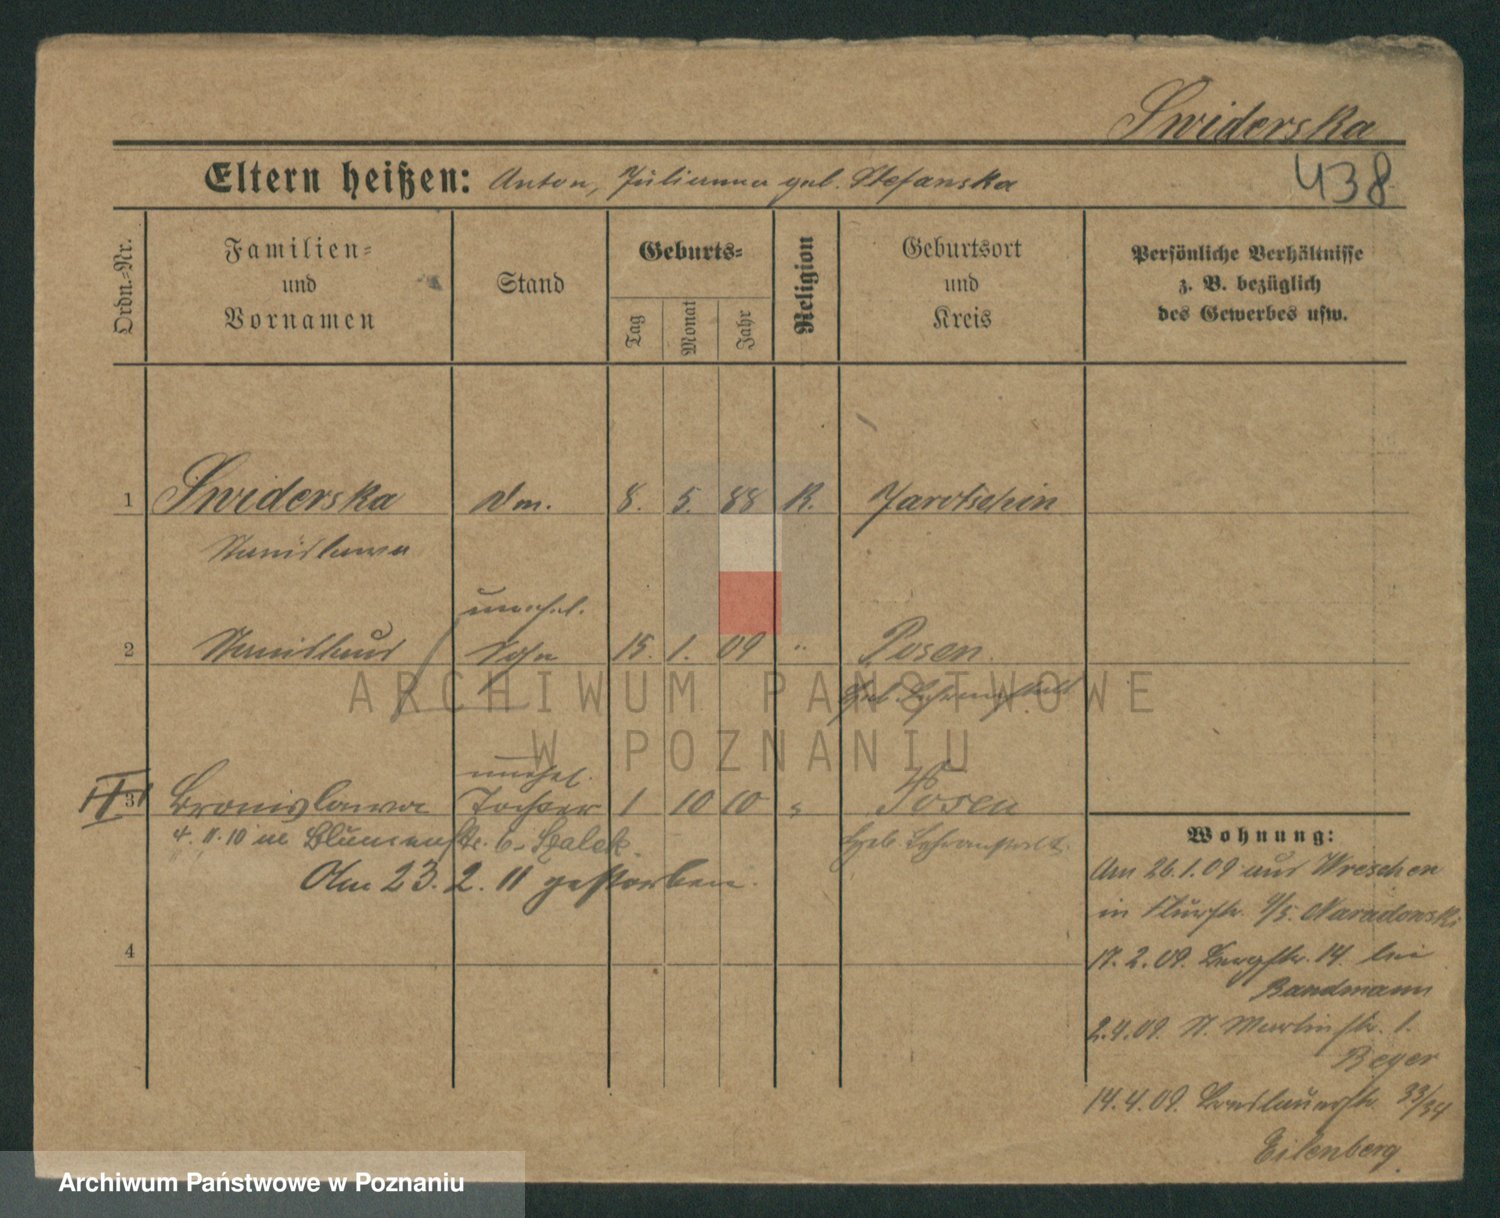 Swiderska
438
Eltern heißen: Anton, Julianna geb. Stefanska
Ordn.-Nr.
Familien-
und
Vornamen
Stand
Geburts-
Tag
Monat
Jahr
Religion
Geburtsort
und
Kreis
Persönliche Verhältnisse
z. B. bezüglich
des Gewerbes usw.
1 Swiderska 8. 5. 88 K. Jarotschin
Stanislawa
unehel.
2 Stanislaus Sohn 15. 1. 09 " Posen
Heb. Lehranstalt
unehel.
3 Bronislawa Tochter 1 10 10 " Posen
4.11.10 Blumenstr. 6. Heb. Lehranstalt
Am 23. 2. 11 gestorben.
4
Wohnung:
Am 26.1.09 aus Wreschen
in Flurstr. Naradowski
17.2.09. Bergstr. 14 bei
Bandmann
2.4.09. St. Martinstr. 1.
Beyer
14.4.09. Breslauerstr. 33/34
Eilenberg
ARCHIWUM PAŃSTWOWE
W POZNANIU
Archiwum Państwowe w Poznaniu